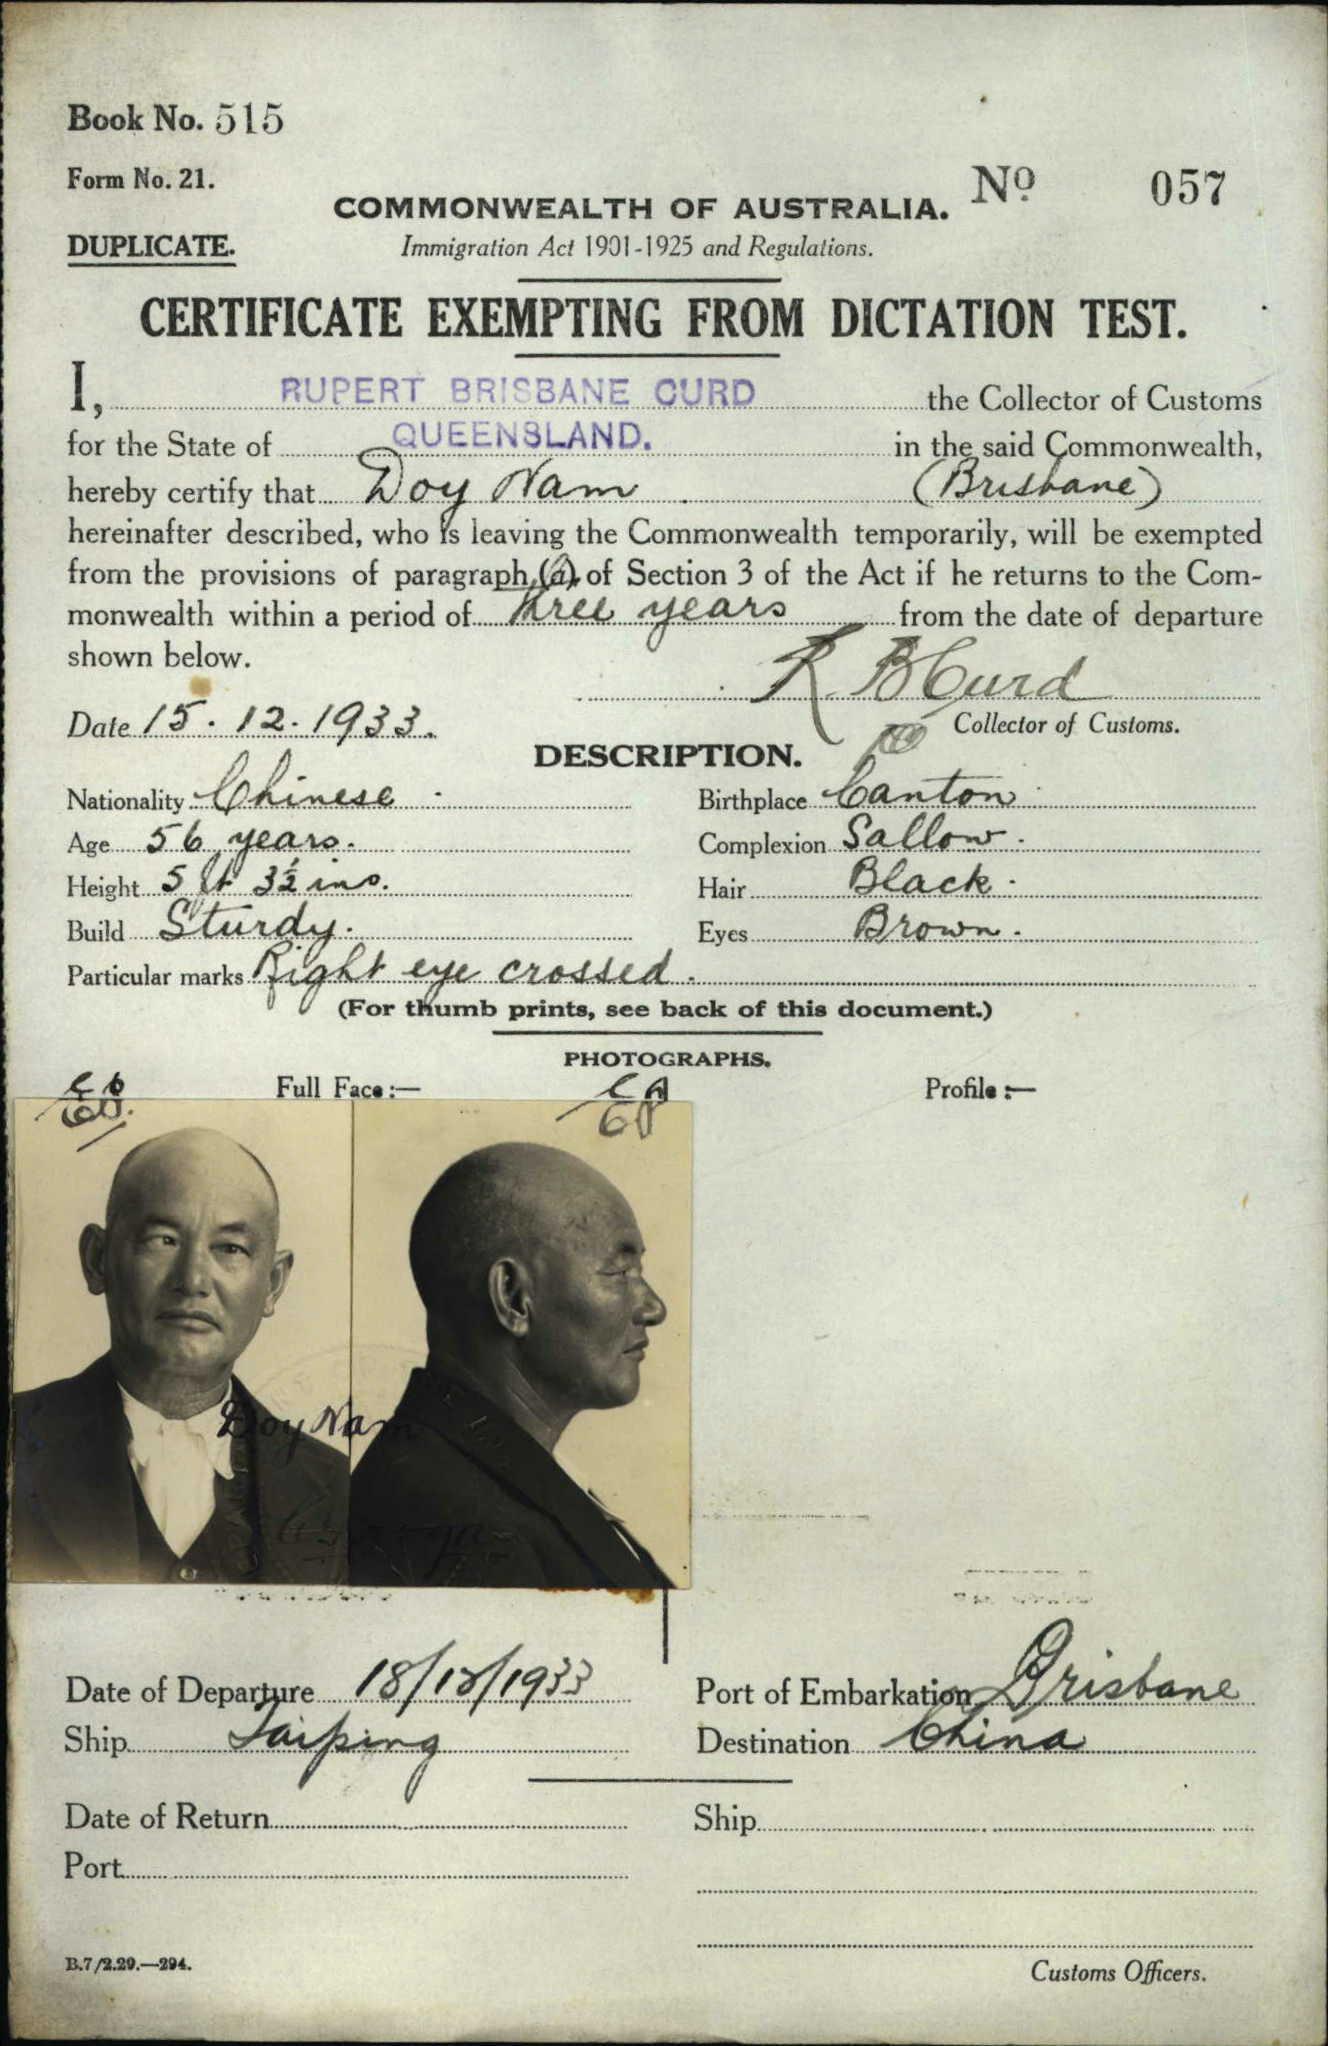 Book No. 515
Form No. 21.
No 057
COMMONWEALTH OF AUSTRALIA.
DUPLICATE.
Immigration Act 1901-1925 and Regulations.
CERTIFICATE EXEMPTING FROM DICTATION TEST.
I, RUPERT BRISBANE CURD the Collector of Customs
for the State of QUEENSLAND. in the said Commonwealth,
hereby certify that Doy Nam (Brisbane)
hereinafter described, who is leaving the Commonwealth temporarily, will be exempted
from the provisions of paragraph (a) of Section 3 of the Act if he returns to the Com-
monwealth within a period of three years from the date of departure
shown below.
R B Curd
Date 15.12.1933.
Collector of Customs.
DESCRIPTION.
Nationality Chinese
Birthplace Canton
Age 56 years.
Complexion Sallow.
Height 5 ft 3½ ins.
Hair Black.
Build Sturdy.
Eyes Brown.
Particular marks Right eye crossed.
(For thumb prints, see back of this document.)
PHOTOGRAPHS.
Full Face:—
Profile:—
Doy Nam
Date of Departure 18/12/1933
Port of Embarkation Brisbane
Ship Taiping
Destination China
Date of Return
Ship
Port
B.7/2.29.—294.
Customs Officers.